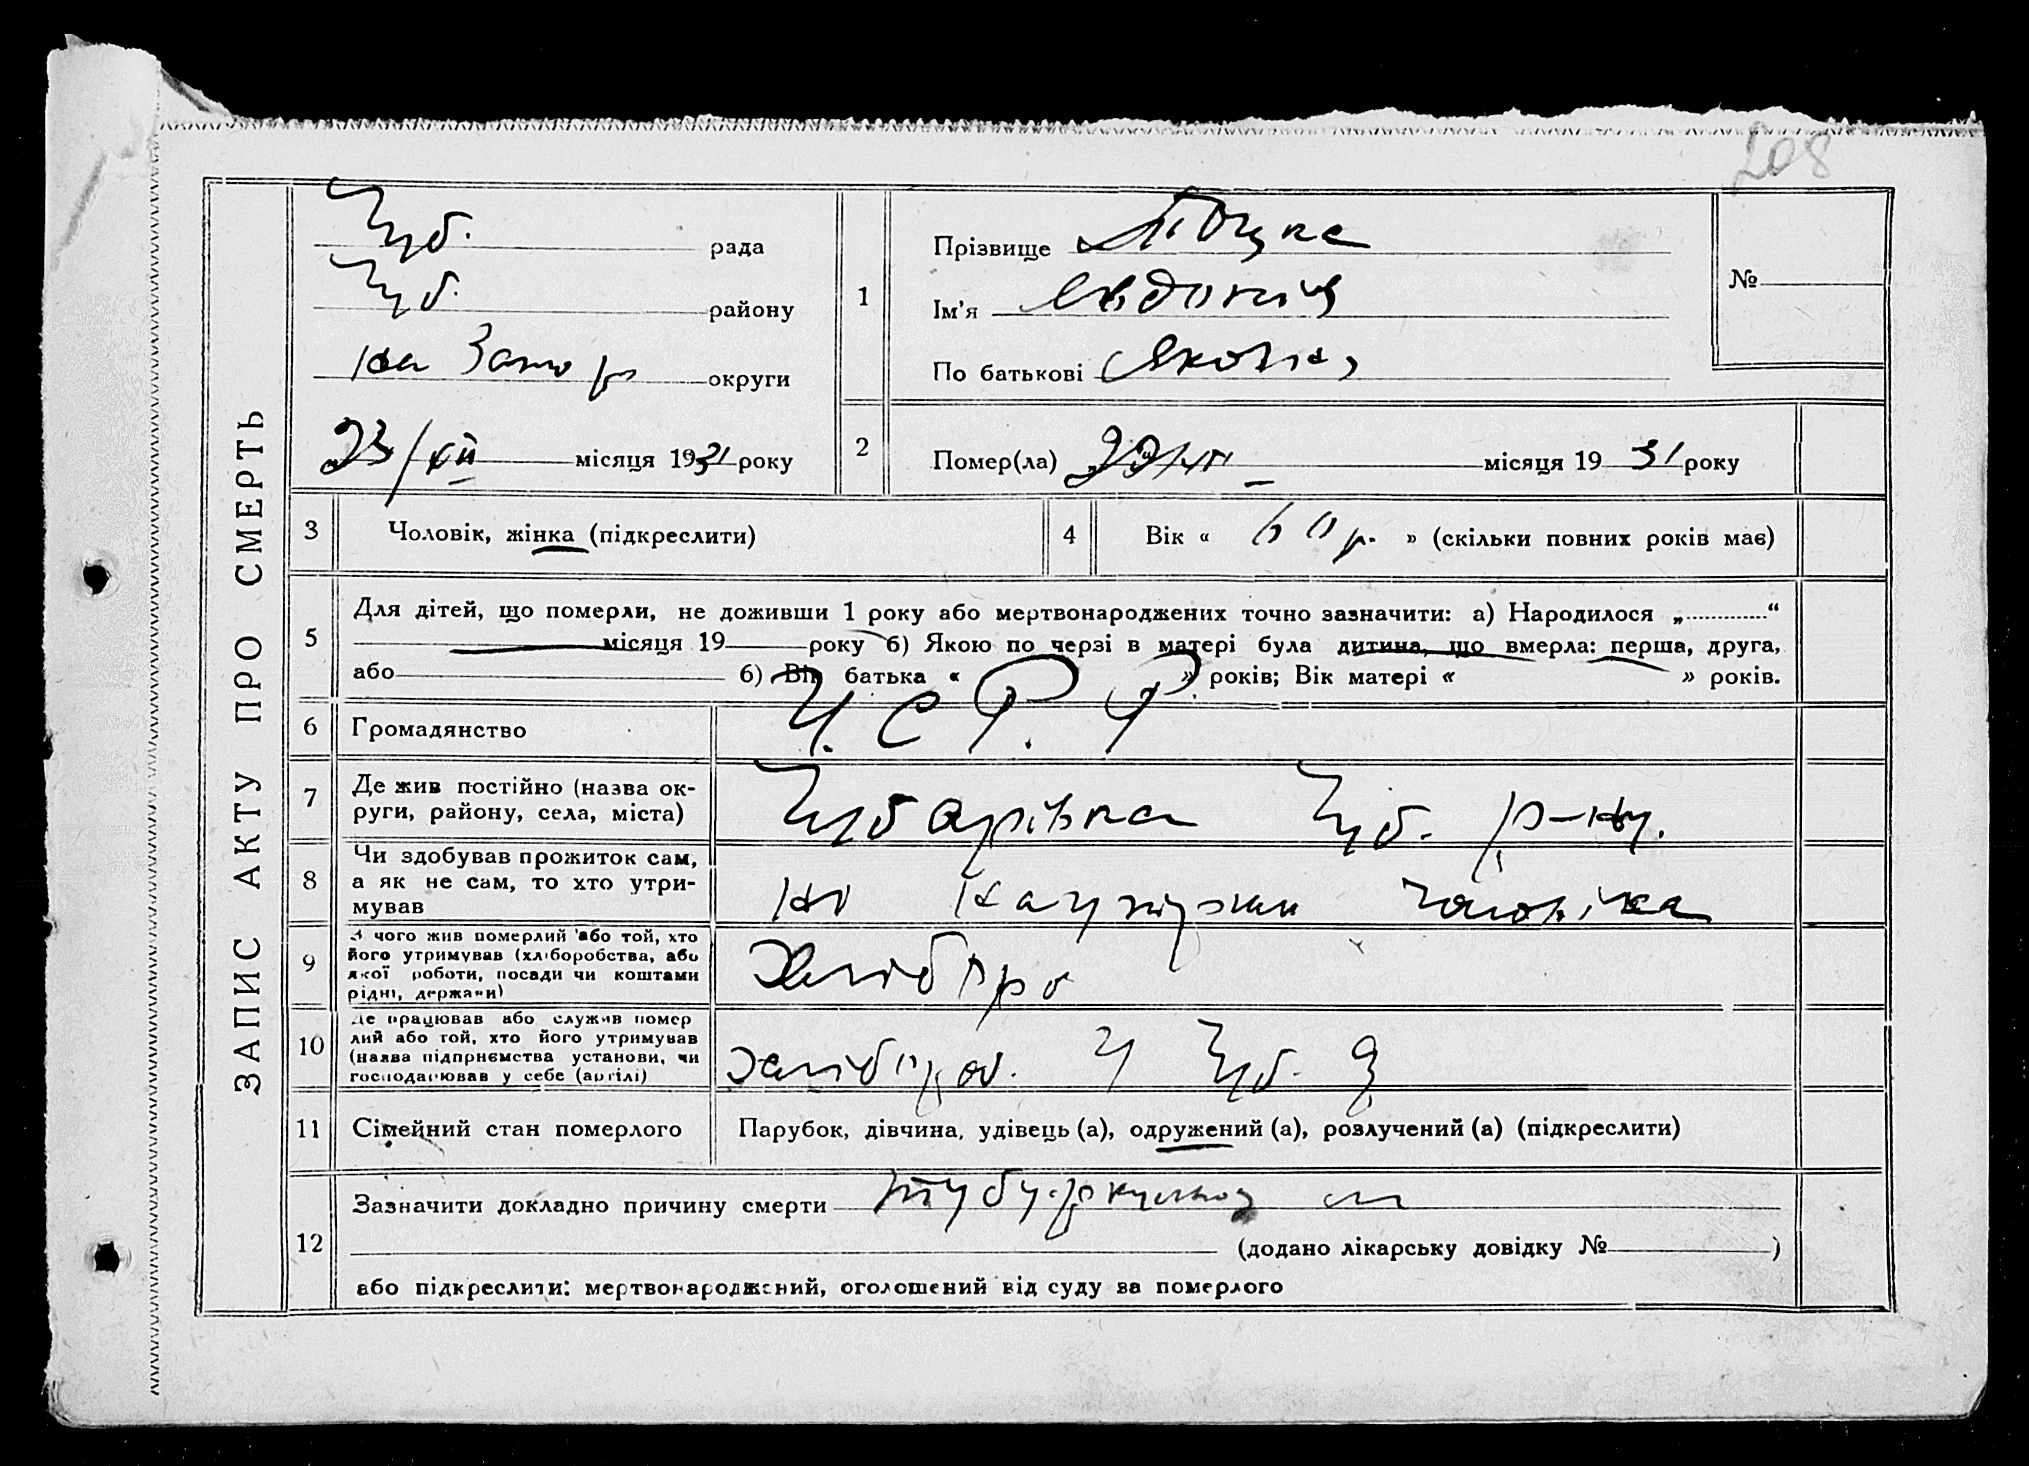 208
ЗАПИС АКТУ ПРО СМЕРТЬ
Чуб. рада
Чуб. району
на Запор округи
23/XII місяця 1931 року
1
Прізвище
Ім'я Явдокія
По батькові Яковна
№
2
Помер(ла) місяця 1931 року
3
Чоловік, жінка (підкреслити)
4
Вік « 60 р. » (скільки повних років має)
5
Для дітей, що померли, не доживши 1 року або мертвонароджених точно зазначити: а) Народилося „ “
місяця 19 року б) Якою по черзі в матері була дитина, що вмерла: перша, друга,
або б) Вік батька « » років; Вік матері « » років.
6
Громадянство
У. С. Р. Р.
7
Де жив постійно (назва ок-
руги, району, села, міста)
Чубарівка Чуб. р-ну.
8
Чи здобував прожиток сам,
а як не сам, то хто утри-
мував
на чоловіка
9
З чого жив померлий або той, хто
його утримував (хліборобства, або
якої роботи, посади чи коштами
рідні, держави)
Хлібороб
10
Де працював або служив помер
лий або той, хто його утримував
(назва підприємства установи, чи
господарював у себе (артілі)
хлібороб. у Чуб.
11
Сімейний стан померлого
Парубок, дівчина, удівець (а), одружений (а), розлучений (а) (підкреслити)
12
Зазначити докладно причину смерти
(додано лікарську довідку № )
або підкреслити: мертвонароджений, оголошений від суду за померлого